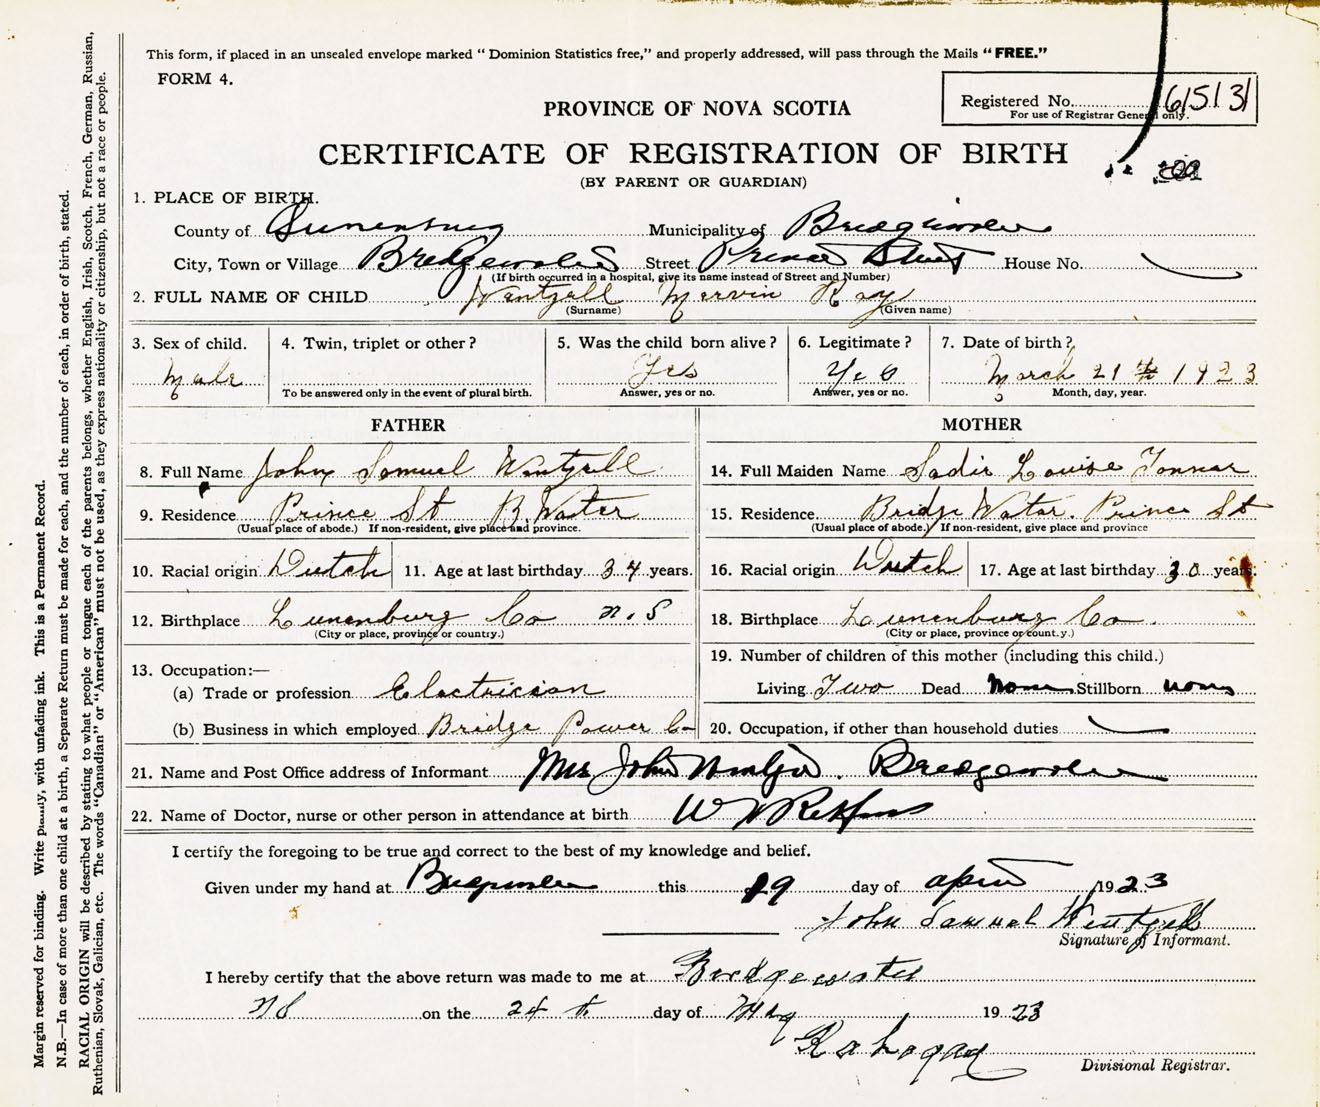 This form, if placed in an unsealed envelope marked "Dominion Statistics free," and properly addressed, will pass through the Mails "FREE."
FORM 4.
Registered No. 61513
For use of Registrar General only.
PROVINCE OF NOVA SCOTIA
CERTIFICATE OF REGISTRATION OF BIRTH
(BY PARENT OR GUARDIAN)
1. PLACE OF BIRTH.
County of Lunenburg Municipality of Bridgewater
City, Town or Village Bridgewater Street Prince Street House No.
(If birth occurred in a hospital, give its name instead of Street and Number)
2. FULL NAME OF CHILD Wentzell Mervin Ray
(Surname) (Given name)
3. Sex of child. 4. Twin, triplet or other? 5. Was the child born alive? 6. Legitimate? 7. Date of birth?
Male Yes Yes March 21 1923
To be answered only in the event of plural birth. Answer, yes or no. Answer, yes or no. Month, day, year.
FATHER MOTHER
8. Full Name John Samuel Wentzell 14. Full Maiden Name Sadie Louise
9. Residence Prince St B. Water 15. Residence Bridge Water. Prince St
(Usual place of abode.) If non-resident, give place and province. (Usual place of abode.) If non-resident, give place and province
10. Racial origin Dutch 11. Age at last birthday 34 years. 16. Racial origin Dutch 17. Age at last birthday 30 years.
12. Birthplace Lunenburg Co N.S 18. Birthplace Lunenburg Co.
(City or place, province or country.) (City or place, province or count.y.)
13. Occupation:— 19. Number of children of this mother (including this child.)
(a) Trade or profession Electrician Living Two Dead None Stillborn none
(b) Business in which employed Bridge Power Co 20. Occupation, if other than household duties
21. Name and Post Office address of Informant Mrs John Wentzell. Bridgewater
22. Name of Doctor, nurse or other person in attendance at birth W
I certify the foregoing to be true and correct to the best of my knowledge and belief.
Given under my hand at Bridgewater this 19 day of April 1923
John Samuel Wentzell
Signature of Informant.
I hereby certify that the above return was made to me at Bridgewater
NS on the 24th day of May 1923
Divisional Registrar.
Margin reserved for binding. Write plainly, with unfading ink. This is a Permanent Record.
N.B.—In case of more than one child at a birth, a Separate Return must be made for each, and the number of each, in order of birth, stated.
RACIAL ORIGIN will be described by stating to what people or tongue each of the parents belongs, whether English, Irish, Scotch, French, German, Russian,
Ruthenian, Slovak, Galician, etc. The words "Canadian" or "American" must not be used, as they express nationality or citizenship, but not a race or people.